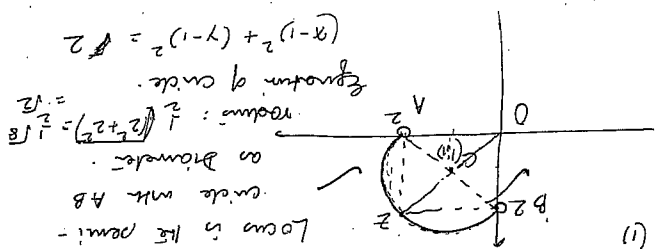 (i)
B 2
Z
(1,1)
O
A
2
Locus is the semi-
circle with AB
as Diameter.
radius: 1/2 √(2²+2²) = 1/2 √8
= √2
Equation of circle.
(x-1)² + (y-1)² = 2